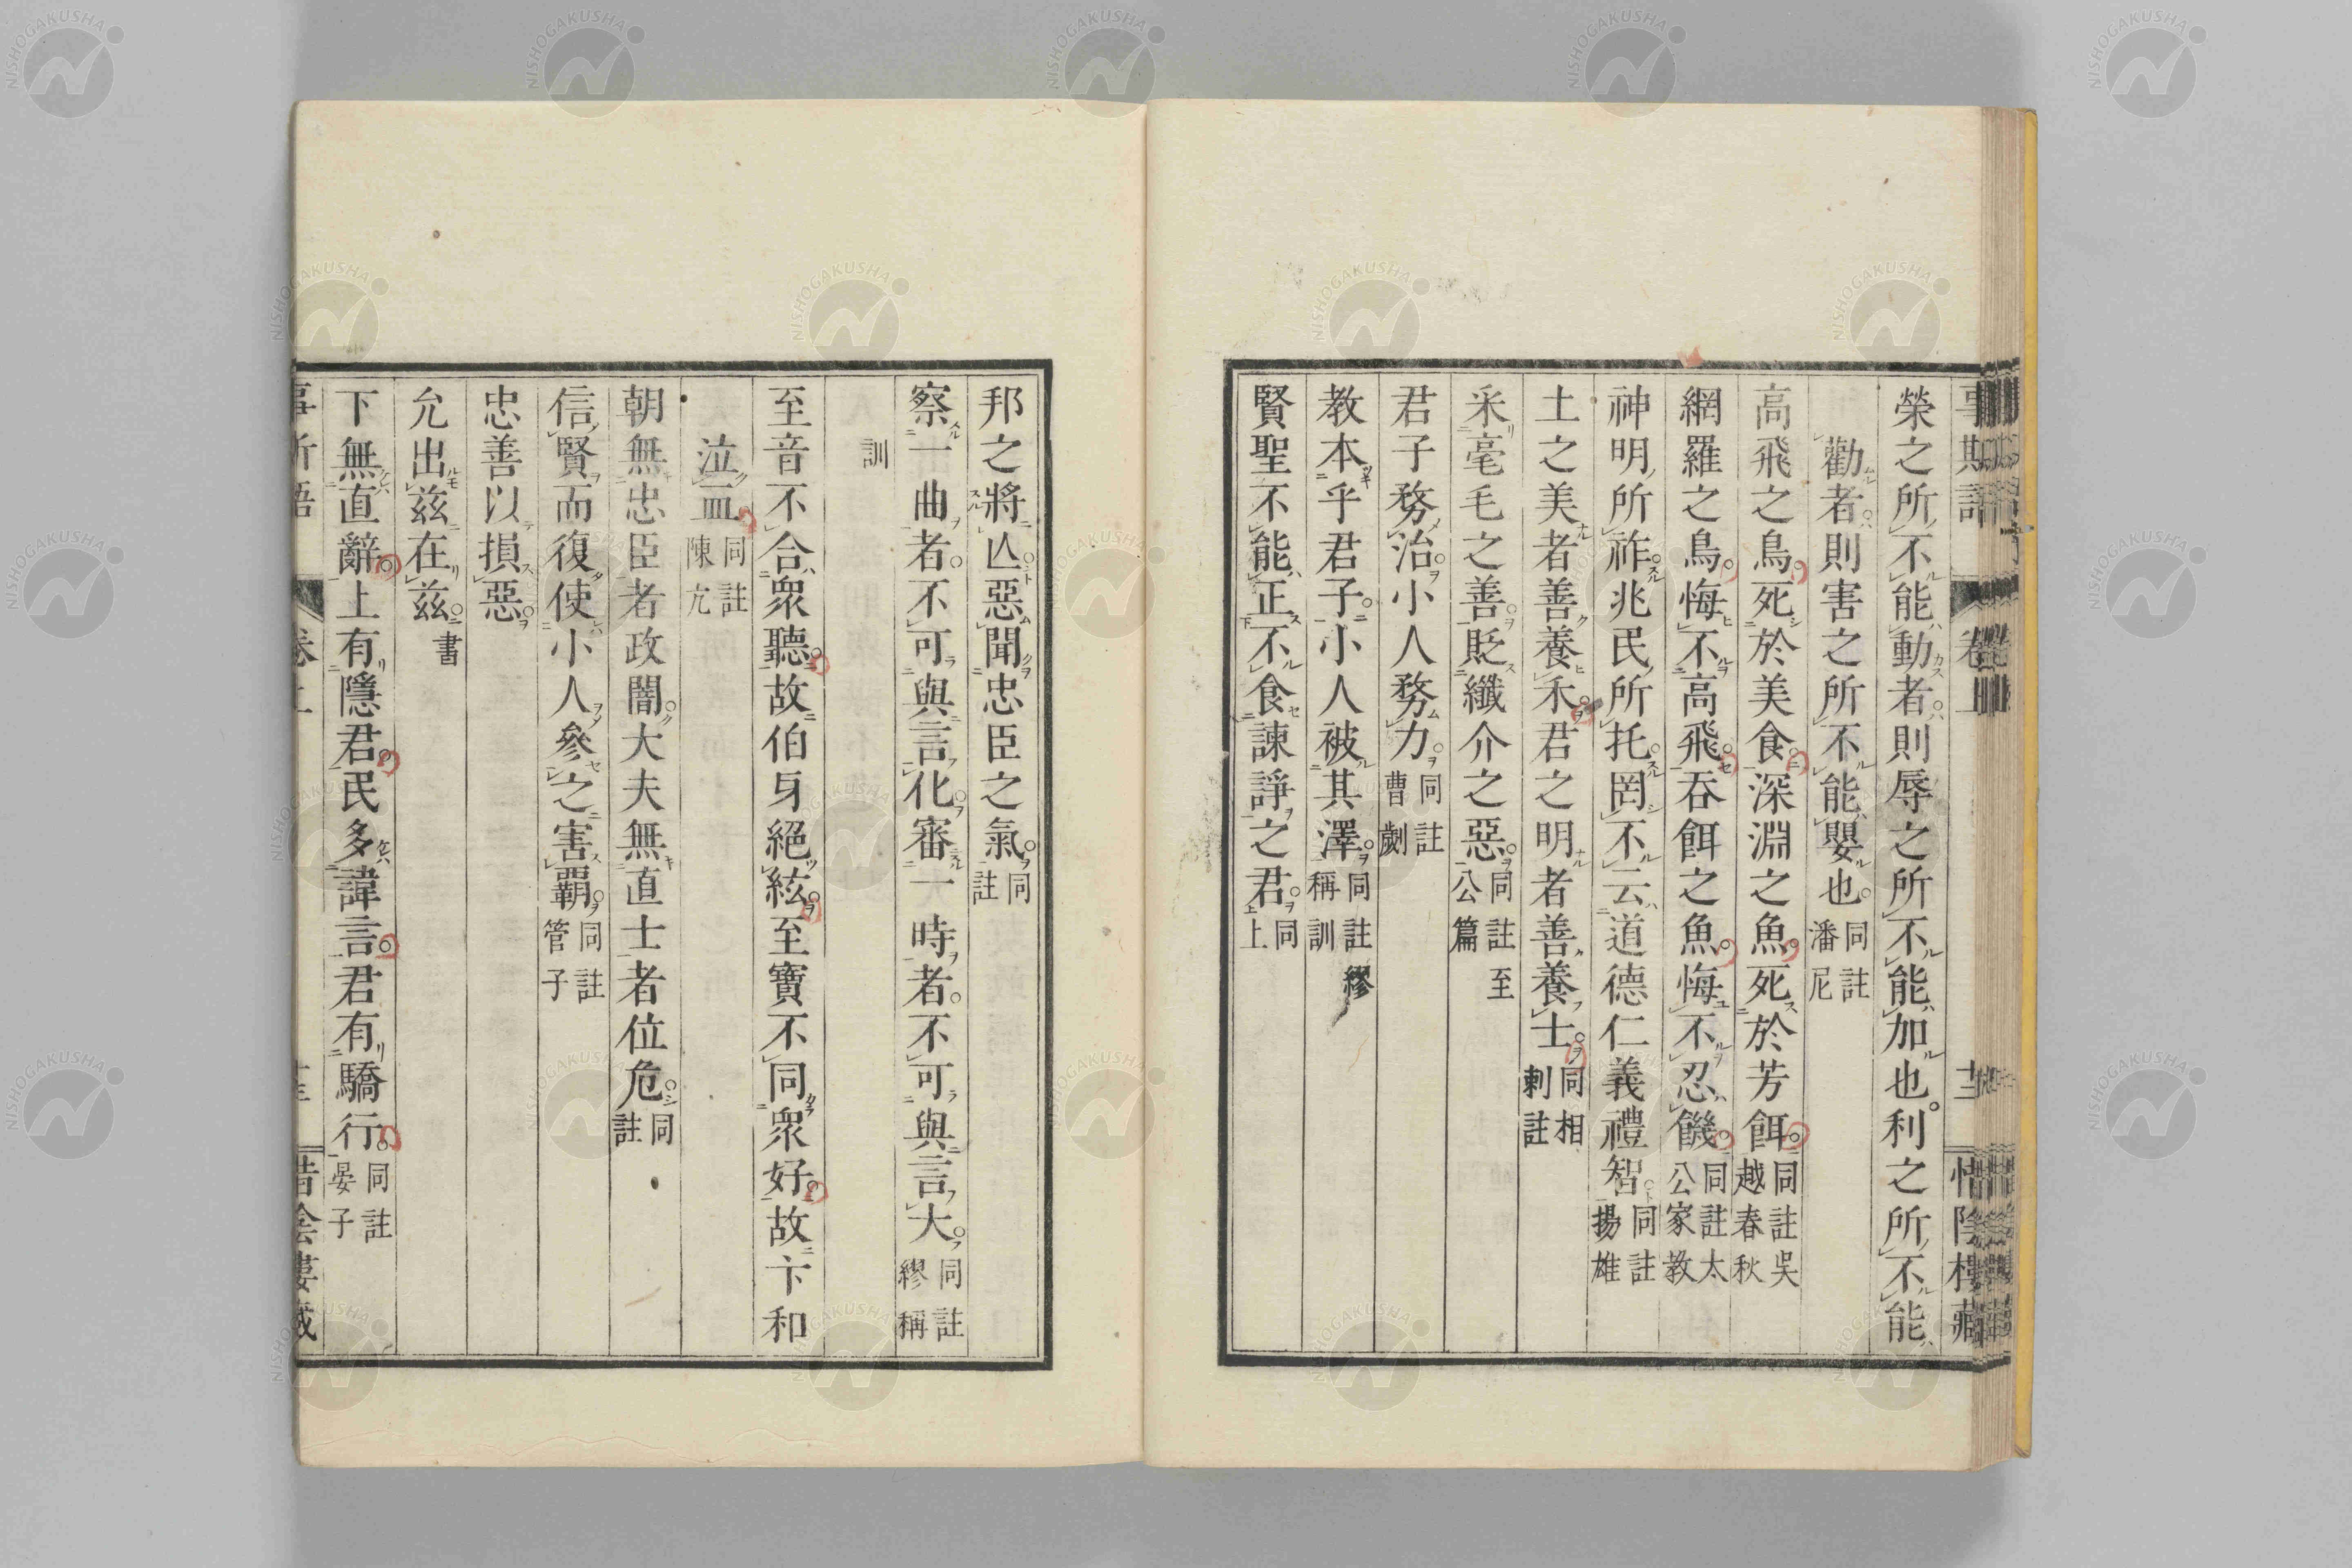 榮之所不能動者則辱之所不能加也利之所不能
勸者則害之所不能嬰也同註潘尼
高飛之鳥死於美食深淵之魚死於芳餌同註吳越春秋
網羅之鳥悔不高飛吞餌之魚悔不忍饑同註太公家教
神明所祚兆民所托罔不云道德仁義禮智同註揚雄
土之美者善養禾君之明者善養士同相刺註
采毫毛之善貶纖介之惡同註至公篇
君子務治小人務力同註曹劌
教本乎君子小人被其澤同註繆稱訓
賢聖不能正不食諫諍之君同上
邦之將亾惡聞忠臣之氣同註
察一曲者不可與言化審一時者不可與言大同註繆稱
訓
至音不合眾聽故伯牙絕絃至寶不同眾好故卞和
泣血同註陳亢
朝無忠臣者政闇大夫無直士者位危同註
信賢而復使小人參之害霸同註管子
忠善以損惡
允出茲在茲書
下無直辭上有隱君民多諱言君有驕行同註晏子
NISHOGAKUSHA